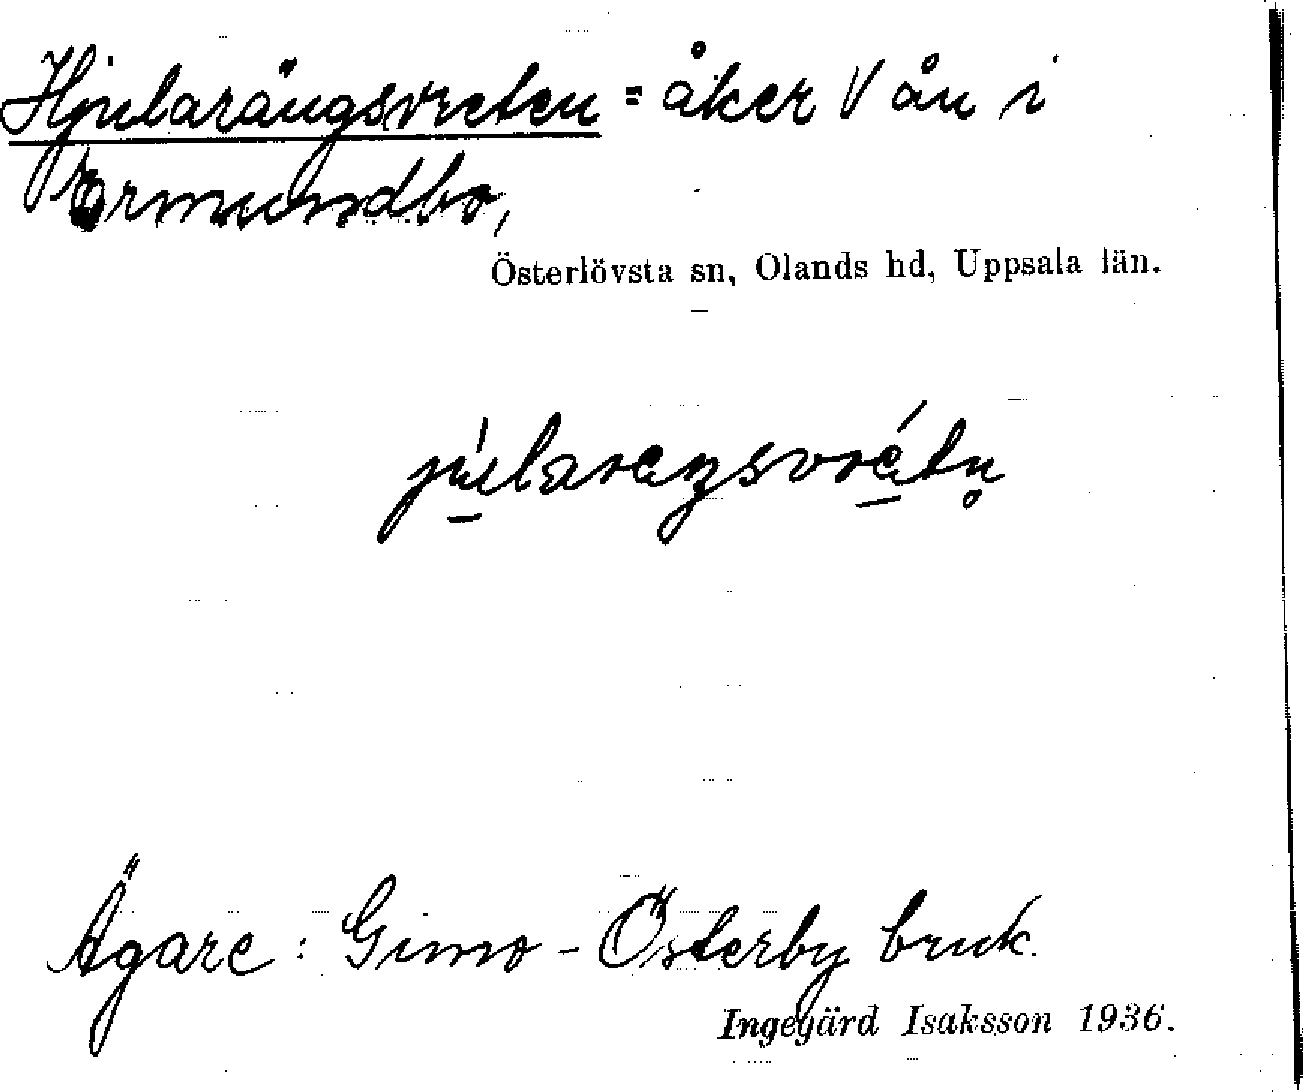 Hjularängsvreten = åker V ån i
Ormundbo,
Österlövsta sn, Olands hd, Uppsala län.
júlaraŋsvrétn̥
Ägare: Gimo - Österby bruk.
Ingegärd Isaksson 1936.